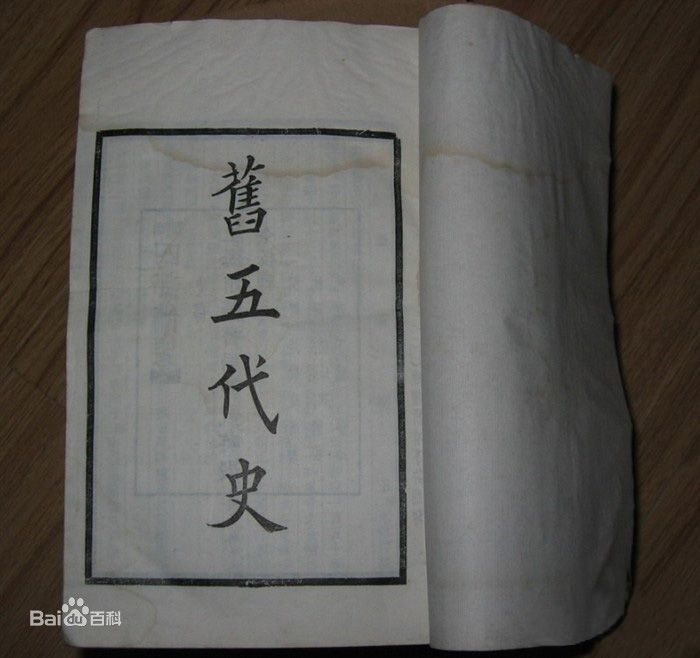 舊五代史
Bai du 百科